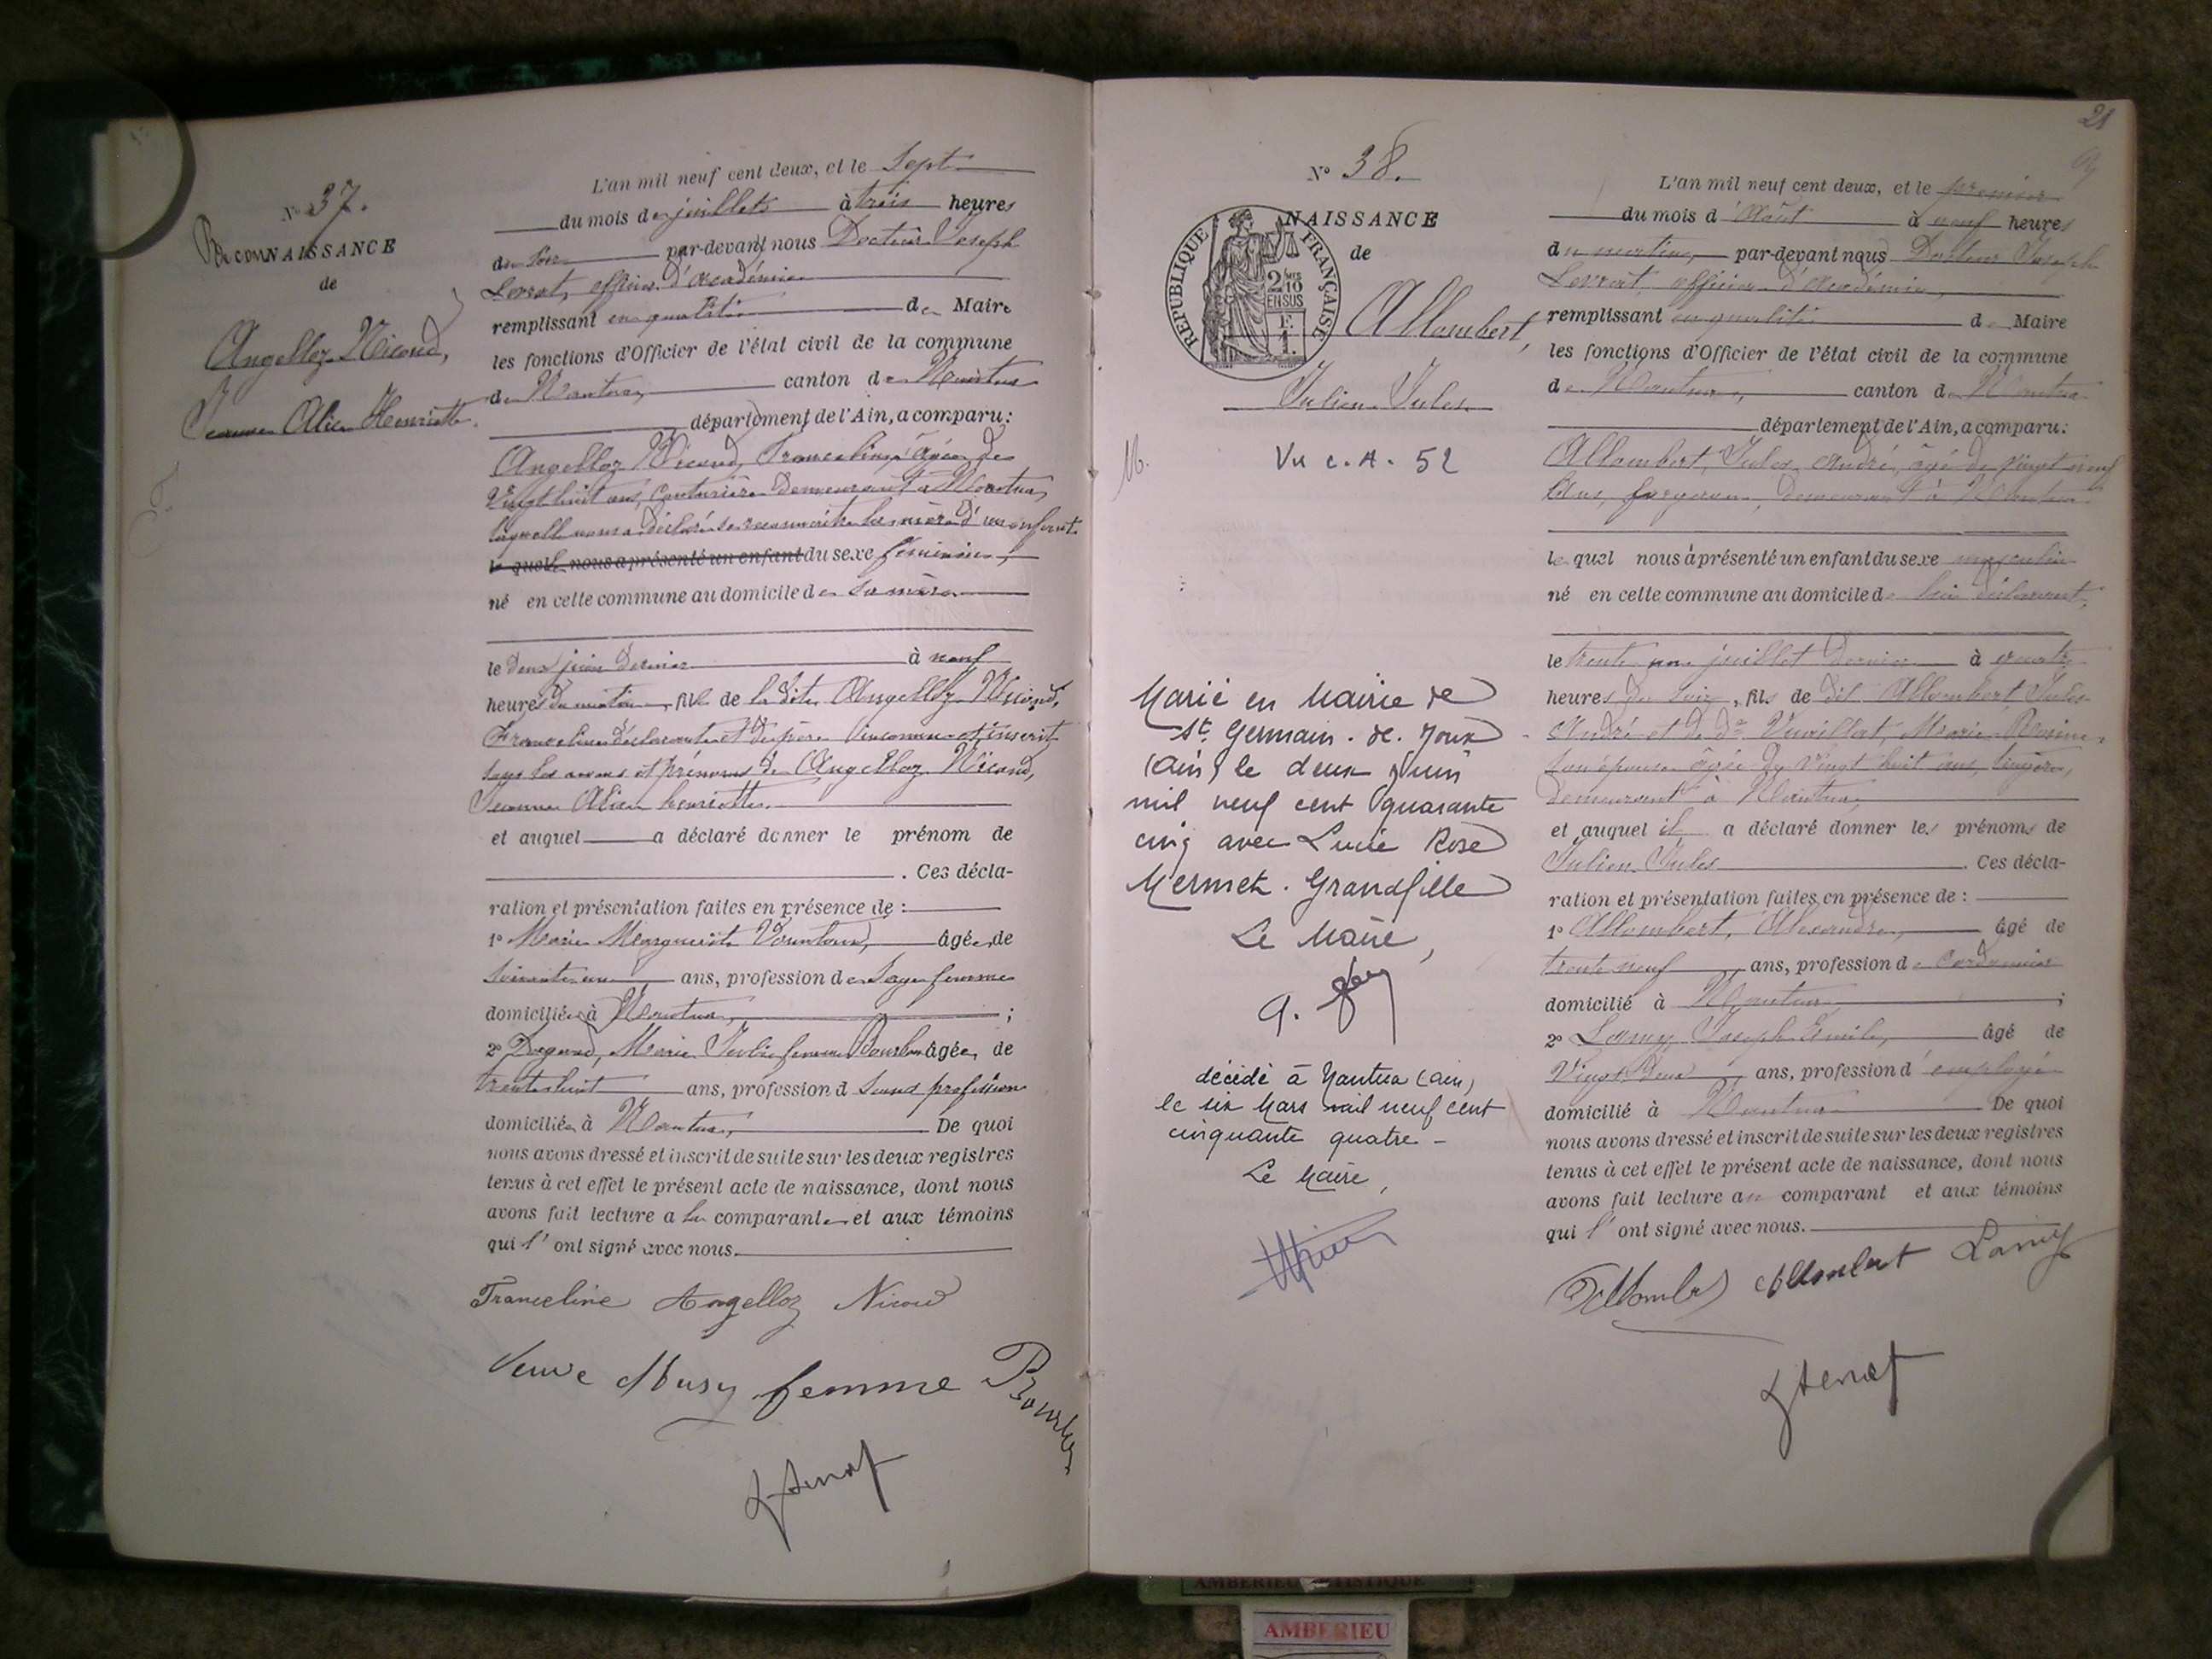 N° 37.
RECONNAISSANCE
de
Angelloz-Nicoud,
Jeanne Alice Henriette.
L'an mil neuf cent deux, et le sept
du mois de juillet à trois heures
du soir par-devant nous Docteur Joseph
officier d'académie
remplissant en qualité de Maire
les fonctions d'Officier de l'état civil de la commune
de Nantua, canton de Nantua
département de l'Ain, a comparu :
Angelloz-Nicoud, Franceline, âgée de
vingt huit ans, couturière demeurant à Nantua,
laquelle nous a déclaré se reconnaître la mère d'un enfant
le quel nous a présenté un enfant du sexe féminin,
né en cette commune au domicile de sa mère
le deux juin dernier à neuf
heures du matin, fille de la dite Angelloz-Nicoud,
Franceline déclarante et de père inconnu et inscrit
sous les noms et prénoms de Angelloz-Nicoud,
Jeanne Alice henriette.
et auquel a déclaré donner le prénom de
. Ces décla-
ration et présentation faites en présence de :
1° Marie Marguerite âgée de
ans, profession de Sage femme
domiciliée à Nantua, ;
2° Marie Julie femme Bourbon âgée de
trente huit ans, profession d sans profession
domiciliée à Nantua, De quoi
nous avons dressé et inscrit de suite sur les deux registres
tenus à cet effet le présent acte de naissance, dont nous
avons fait lecture a la comparante et aux témoins
qui l'ont signé avec nous.
Franceline Angelloz Nicoud
Veuve Musy femme Bourbon
21
N° 38.
NAISSANCE
de
REPUBLIQUE FRANÇAISE
2/10
EN SUS
Allombert,
Julien Jules
M.
Vu C.A. 52
Marié en Mairie de
St. Germain-de-Joux
(Ain) le deux Juin
mil neuf cent quarante
cinq avec Lucie Rose
Mermet-Grandfille
Le Maire,
décédé à Nantua (Ain)
le six Mars mil neuf cent
cinquante quatre -
Le Maire,
L'an mil neuf cent deux, et le premier
du mois d'Août à neuf heures
du matin, par-devant nous Docteur Joseph
officier d'académie,
remplissant en qualité de Maire
les fonctions d'Officier de l'état civil de la commune
de Nantua, canton de Nantua
département de l'Ain, a comparu :
Allombert, Jules André, âgé de vingt neuf
ans, forgeron, demeurant à Nantua
le quel nous a présenté un enfant du sexe masculin
né en cette commune au domicile de lui déclarant,
le trente un juillet dernier à quatre
heures du soir, fils de dit Allombert Jules
André et de De Vuaillat, Marie
son épouse âgée de vingt huit ans, lingère,
demeurant à Nantua,
et auquel il a déclaré donner les prénoms de
Julien Jules . Ces décla-
ration et présentation faites en présence de :
1° Allombert, Alexandre, âgé de
trente neuf ans, profession de Cordonnier
domicilié à Nantua ;
2° Lamy, Joseph Emile, âgé de
Vingt deux ans, profession d'employé
domicilié à Nantua De quoi
nous avons dressé et inscrit de suite sur les deux registres
tenus à cet effet le présent acte de naissance, dont nous
avons fait lecture au comparant et aux témoins
qui l'ont signé avec nous.
Allombert Allombert Lamy
AMBERIEU